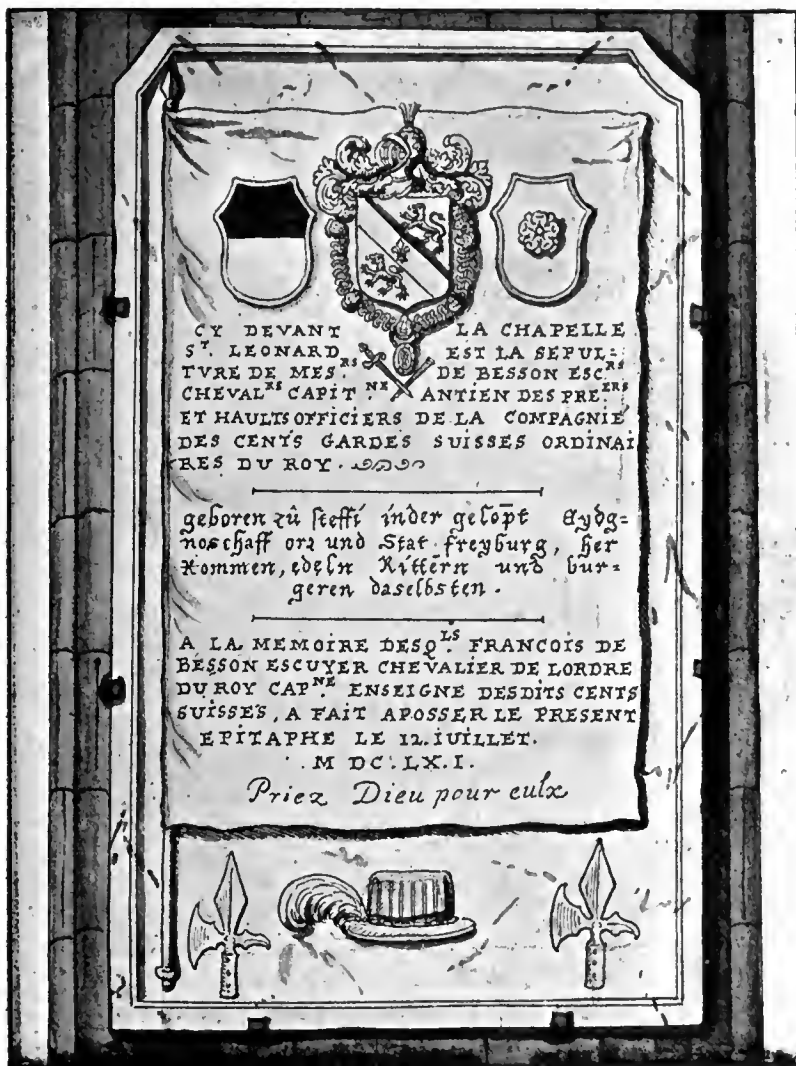 CY DEVANT LA CHAPELLE
S.T LEONARD EST LA SEPUL=
TVRE DE MES.RS DE BESSON ESC.RS
CHEVAL.RS CAPIT.NE ANTIEN DES PRE.ERS
ET HAULTS OFFICIERS DE LA COMPAGNIE
DES CENTS GARDES SUISSES ORDINAI
RES DU ROY.
geboren zû steffi inder gelopt Eydg=
noschaff orz und Stat freyburg, her
kommen, edeln Rittern und bur=
geren daselbsten.
A LA MEMOIRE DESQ.LS FRANCOIS DE
BESSON ESCUYER CHEVALIER DE LORDRE
DU ROY CAP.NE ENSEIGNE DESDITS CENTS
SUISSES, A FAIT APOSSER LE PRESENT
EPITAPHE LE 12. IUILLET.
M DC. LX. I.
Priez Dieu pour eulx